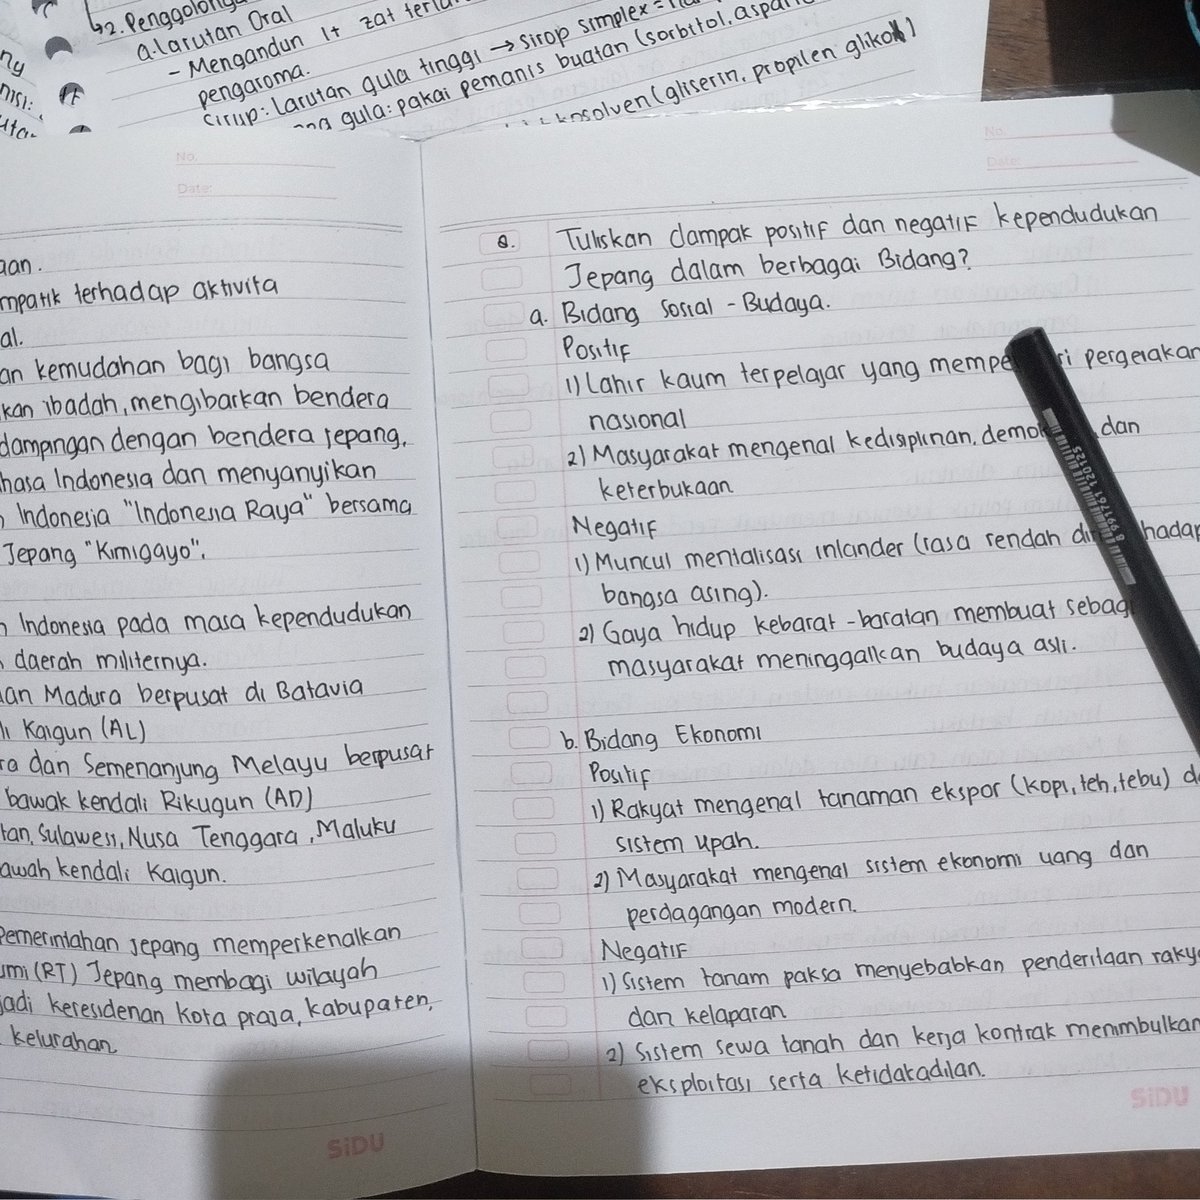 2. Penggolong
a. Larutan Oral
- Mengandun 1+ zat terla
pengaroma.
Sirup: Larutan gula tinggi → sirop simplex =
gula: pakai pemanis buatan (sorbitol, aspar
kosolven (gliserin, propilen glikol)
No.
Date:
aan.
mpatik terhadap aktivita
al.
an kemudahan bagi bangsa
kan ibadah, mengibarkan bendera
dampingan dengan bendera Jepang,
hasa Indonesia dan menyanyikan
Indonesia "Indonesia Raya" bersama
Jepang "Kimigayo".
Indonesia pada masa kependudukan
daerah militernya.
an Madura berpusat di Batavia
li Kaigun (AL)
ra dan Semenanjung Melayu berpusat
bawak kendali Rikugun (AD)
tan, Sulawesi, Nusa Tenggara, Maluku
awah kendali Kaigun.
Pemerintahan Jepang memperkenalkan
umi (RT) Jepang membagi wilayah
jadi keresidenan kota praja, kabupaten,
kelurahan
SiDU
No.
Date:
8. Tuliskan dampak positif dan negatif kependudukan
Jepang dalam berbagai Bidang?
a. Bidang Sosial - Budaya.
Positif
1) Lahir kaum terpelajar yang mempe ri pergerakan
nasional
2) Masyarakat mengenal kedisiplinan, demo dan
keterbukaan
Negatif
1) Muncul mentalisasi inlander (rasa rendah di hadap
bangsa asing).
2) Gaya hidup kebarat-baratan membuat sebagi
masyarakat meninggalkan budaya asli.
b. Bidang Ekonomi
Positif
1) Rakyat mengenal tanaman ekspor (kopi, teh, tebu) d
sistem upah.
2) Masyarakat mengenal sistem ekonomi uang dan
perdagangan modern.
Negatif
1) Sistem tanam paksa menyebabkan penderitaan raky
dan kelaparan
2) Sistem sewa tanah dan kerja kontrak menimbulkan
eksploitasi serta ketidakadilan.
SiDU
8 991761 120125